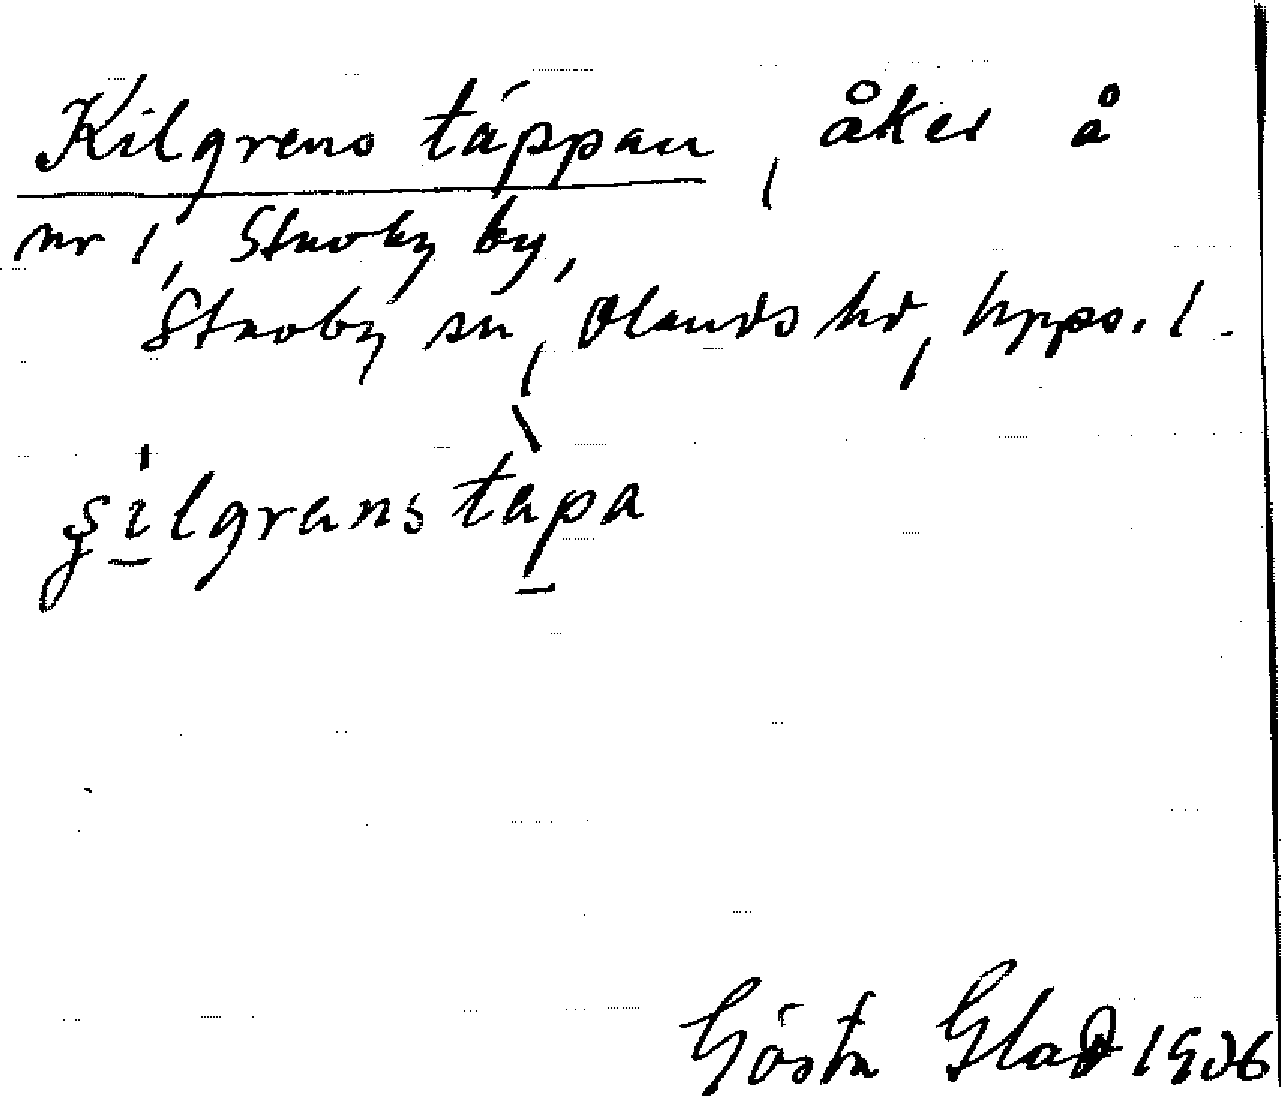 Kilgrens täppan, åker å
nr 1, Stavby by,
Stavby sn, Olands hd, Upps. l.
ʂilgrans tapa
Gösta Glad 1936